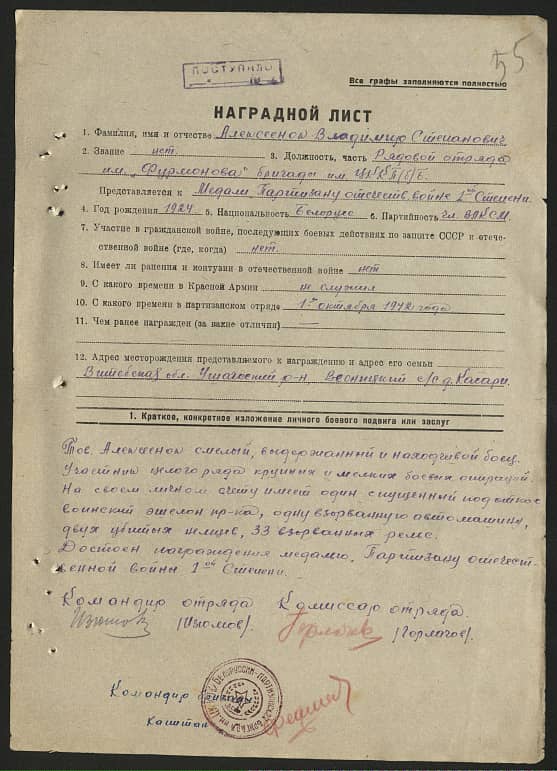 55
ПОСТУПИЛО
Все графы заполняются полностью
НАГРАДНОЙ ЛИСТ
1. Фамилия, имя и отчество Алексеенок Владимир Степанович
2. Звание нет. 3. Должность, часть Рядовой отряда
им. „Фурмонова" бригады им. ЦККП/б/Б.
Представляется к Медали Партизану отечеств. войне 1ой Степени.
4. Год рождения 1924 5. Национальность Белорус 6. Партийность чл. ВЛКСМ.
7. Участие в гражданской войне, последующих боевых действиях по защите СССР и отече-
ственной войне (где, когда) нет.
8. Имеет ли ранения и контузии в отечественной войне нет
9. С какого времени в Красной Армии не служил
10. С какого времени в партизанском отряде 1го октября 1942 года
11. Чем ранее награжден (за какие отличия) —
12. Адрес месторождения представляемого к награждению и адрес его семьи
Витебская обл. Ушачский р-н, с/с д. Касари.
1. Краткое, конкретное изложение личного боевого подвига или заслуг
Тов. Алексеенок смелый, выдержанный и находчивый боец.
Участник целого ряда крупных и мелких боевых операций.
На своем личном счету имеет один спущенный под откос
воинский эшелон пр-ка, одну взорванную автомашину,
двух убитых немцев, 33 взорванных рельс.
Достоен награждения медалю, Партизану отечест-
венной войны 1ой Степени.
Командир отряда Комиссар отряда.
Изюмов (Изюмов) (Горлачов).
Командир бригады